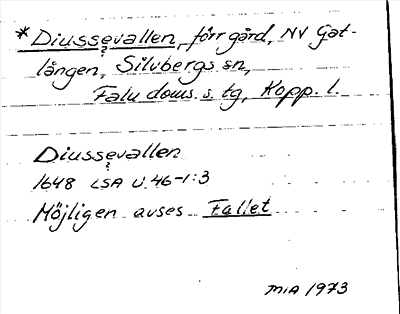 *Diussevallen, förr gård, NV Gat-
lången, Silvbergs sn,
Falu doms. s. tg, Kopp. l.
Diussevallen
?
1648 LSA U 46-1:3
Möjligen avses Fallet
MiA 1973